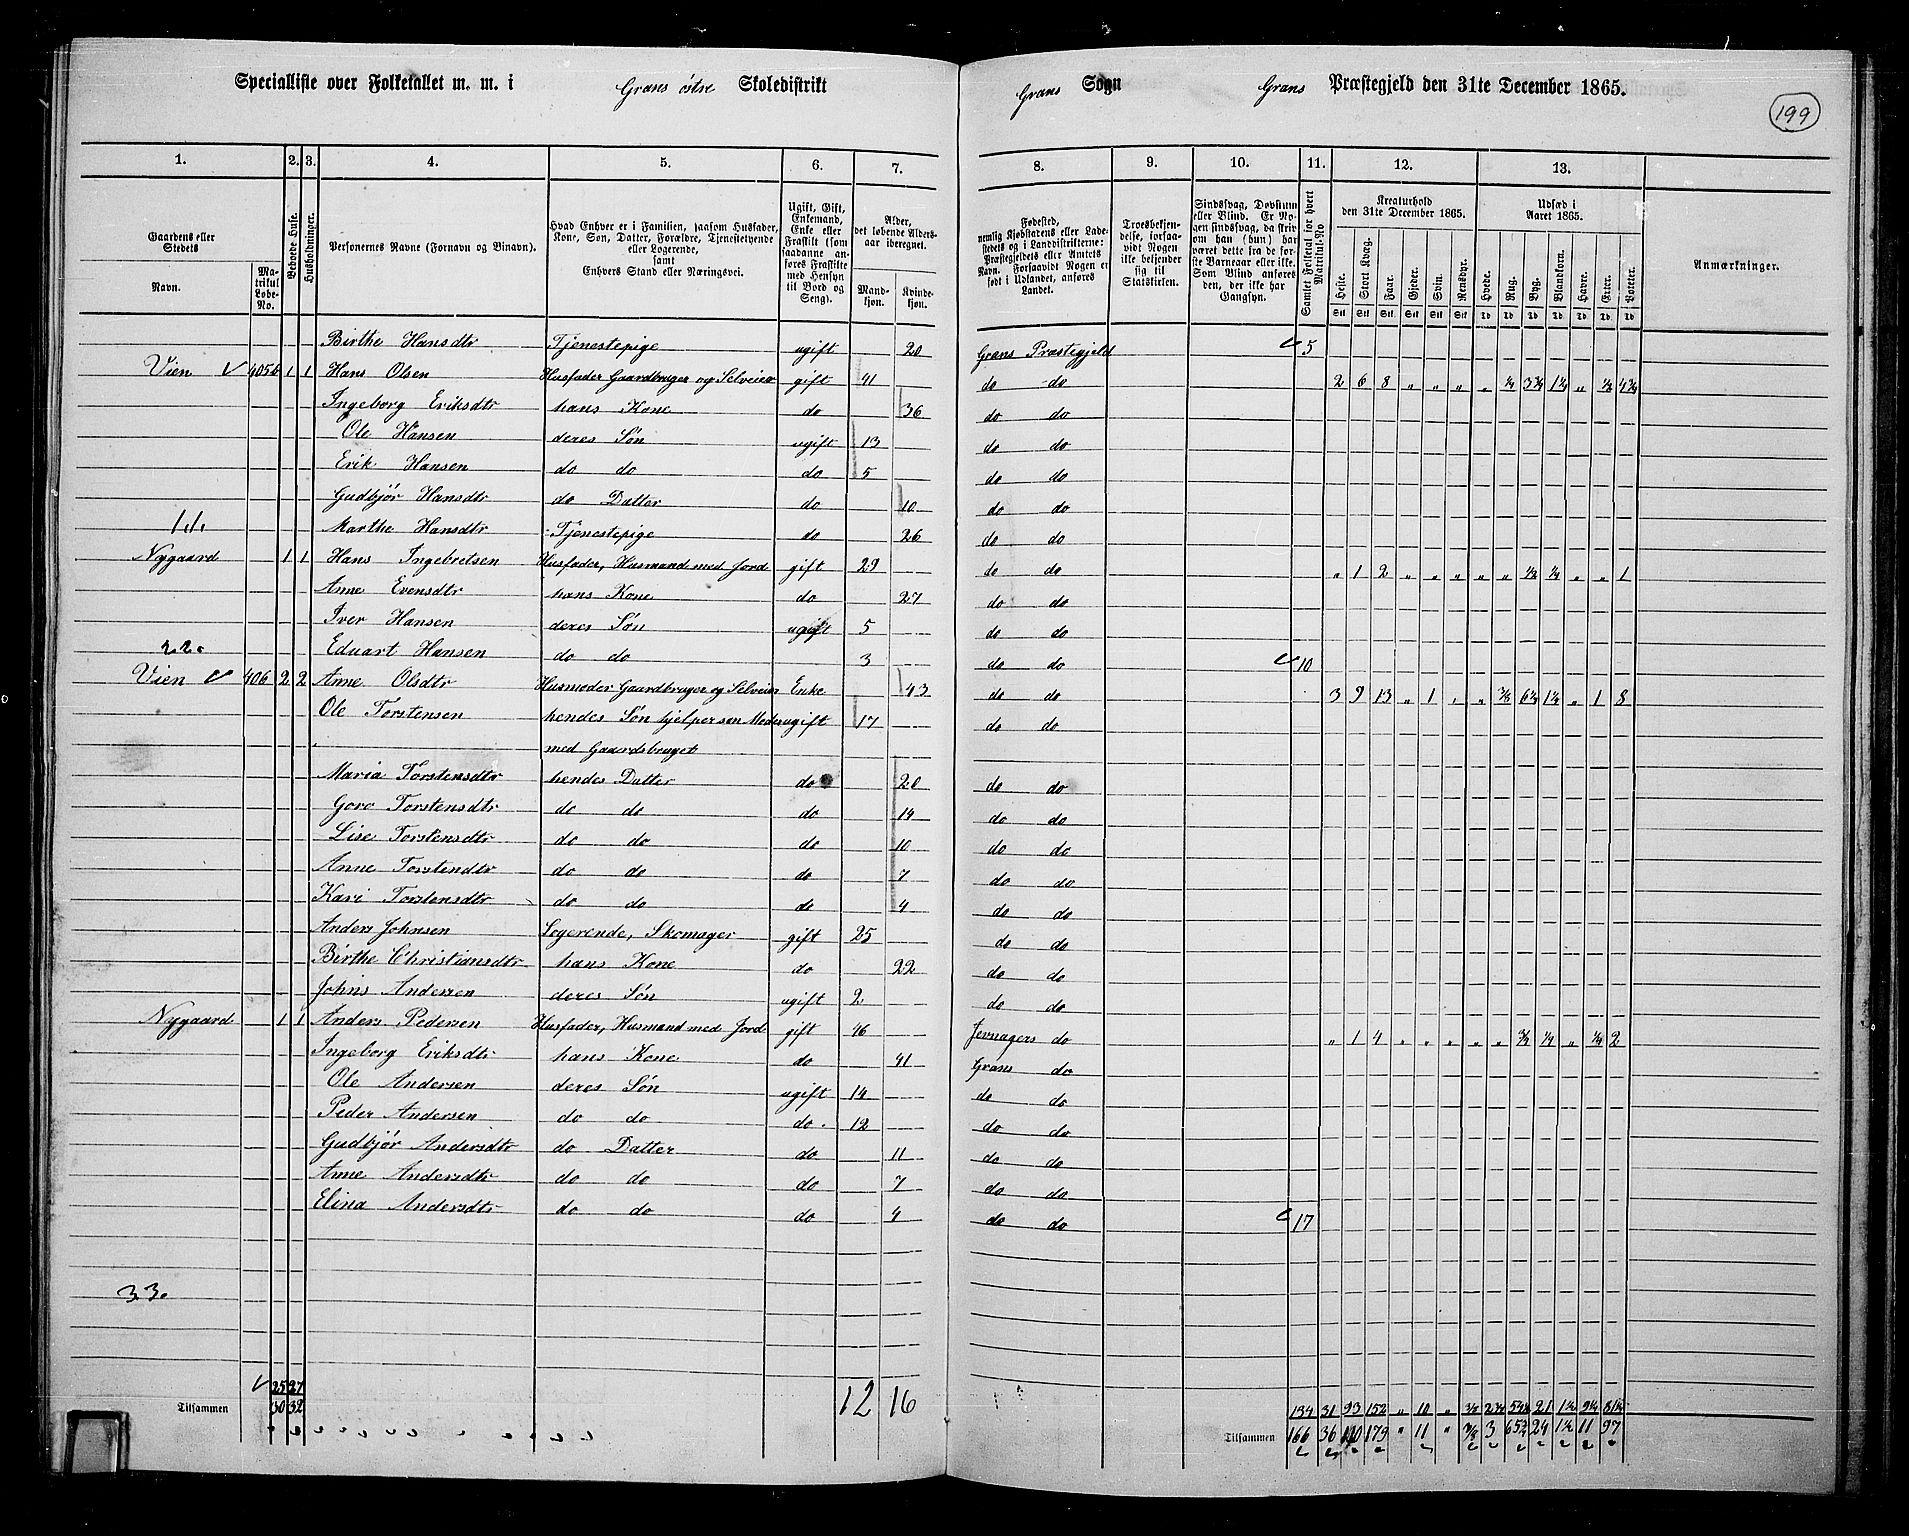 Specialliste over Folketallet m. m. i Grans østre Skoledistrikt Grans Sogn Grans Præstegjeld den 31te December 1865.
199
1. 2. 3. 4. 5. 6. 7. 8. 9. 10. 11. 12. 13.
Gaardens eller Stedets
Navn.
Matrikul Løbe-No.
Beboede Huse.
Husholdninger.
Personernes Navne (Fornavn og Binavn).
Hvad Enhver er i Familien, saasom Husfader, Kone, Søn, Datter, Forældre, Tjenestetyende eller Logerende, samt Enhvers Stand eller Næringsvei.
Ugift, Gift, Enkemand, Enke eller Fraskilt (som saadanne anføres Fraskilte med Hensyn til Bord og Seng).
Alder, det løbende Aldersaar iberegnet.
Mandkjøn. Kvindekjøn.
Fødested, nemlig Kjøbstadens eller Ladestedets og i Landdistrikterne: Præstegjeldets eller Amtets Navn. Forsaavidt Nogen er født i Udlandet, anføres Landet.
Troesbekjendelse, forsaavidt Nogen ikke bekjender sig til Statskirken.
Sindssvag, Døvstum eller Blind. Er Nogen sindssvag, da skriv om han (hun) har været dette fra de første Barneaar eller ikke. Som Blind anføres den, der ikke har Gangsyn.
Samlet Folketal for hvert Matrikul-No
Kreaturhold den 31te December 1865.
Heste. Stort Kvæg. Faar. Gjeder. Svin. Rensdyr.
Udsæd i Aaret 1865.
Hvede. Rug. Byg. Blandkorn. Havre. Erter. Poteter.
Stk Stk Stk Stk Stk Stk Td Td Td Td Td Td Td
Anmærkninger.
Birthe Hansdtr Tjenestepige ugift 20 Grans Præstegjeld 5
Vien 405b 1 1 Hans Olsen Husfader Gaardbruger og Selveier gift 41 do do 2 6 8 " " " " ¼ 3¾ 1¼ "
Ingeborg Eriksdtr hans Kone do 36 do do
Ole Hansen deres Søn ugift 13 do do
Erik Hansen do do do 5 do do
Gudbjør Hansdtr do Datter do 10 do do
1.1. Marthe Hansdtr Tjenestepige do 26 do do
Nygaard 1 1 Hans Ingebretsen Husfader, Husmand med Jord gift 29 do do " 1 2 " " " " " ½ ¼ " " 1
Anne Evensdtr hans Kone do 27 do do
Iver Hansen deres Søn ugift 5 do do
2.2. Eduart Hansen do do 3 do do 10
Vien 406 2 2 Anne Olsdtr Husmoder Gaardbruger og Selveier Enke 43 do do 3 9 13 " 1 " " 1 8
Ole Torstensen hendes Søn hjelper sin Moder ugift 17 do do
med Gaardsbruget
Maria Torstensdtr hendes Datter do 20 do do
Goro Torstensdtr do do do 14 do do
Lise Torstensdtr do do do 10 do do
Anne Torstendtr do do do 7 do do
Kari Torstensdtr do do do 4 do do
Anders Johnsen Logerende, Skomager gift 25 do do
Birthe Christiansdtr hans Kone do 22 do do
Johns Andersen deres Søn ugift 2 do do
Nygaard 1 1 Anders Pedersen Husfader, Husmand med Jord gift 46 Jevnagers do " 1 4 " " " " " ¾ ¼ " ¼ 2
Ingeborg Eriksdtr hans Kone do 41 Grans do
Ole Andersen deres Søn ugift 14 do do
Peder Andersen do do do. 12 do do
Gudbjør Andersdtr do Datter do 11 do do
Anne Andersdtr do do do 7 do do
Elina Andersdtr do do do 4 do do 17
3.3.
25 27 12 16 134 31 93 152 " 10 " 21
Tilsammen 30 32 Tilsammen 166 36 110 179 " 11 " 3 24 1½ 11 97